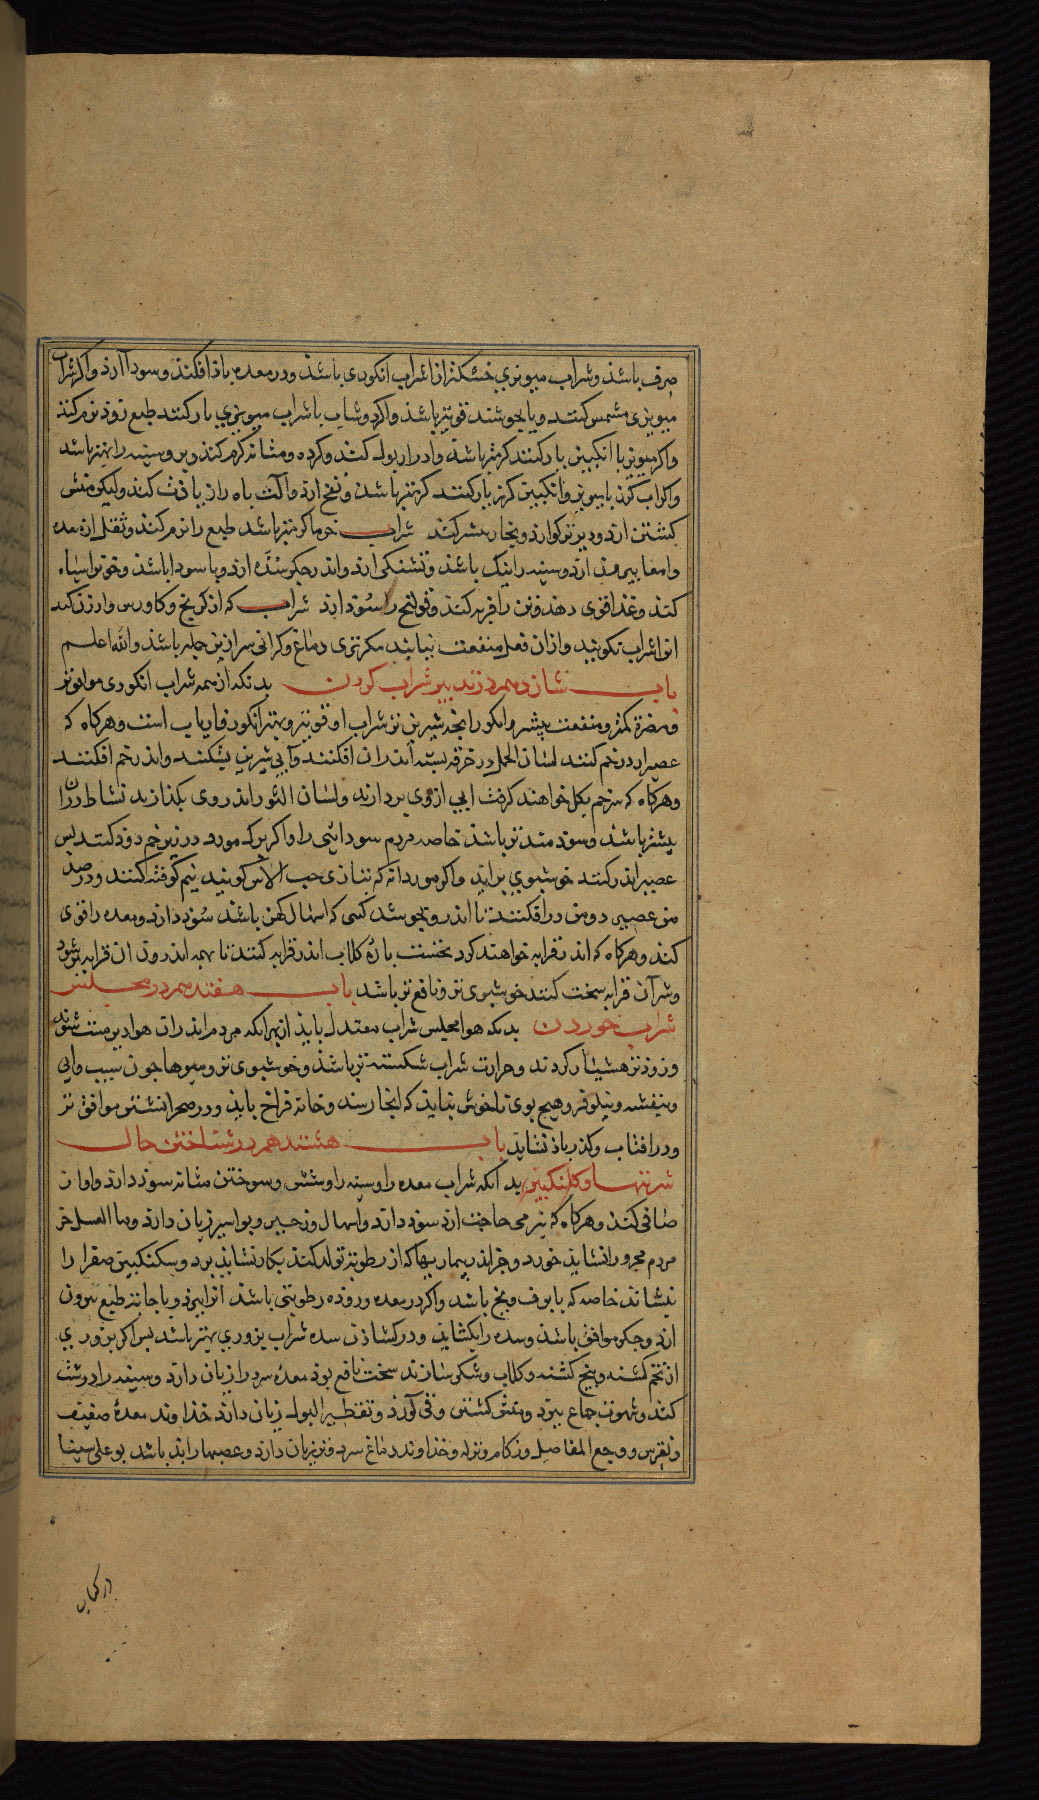 صرف باشذ وشراب میویزي خشکتر از شراب انکوری باشذ ودر معده باذ افکند وسودا آرذ واکر شراب
میویزی مشمس کنند ویا بجوشند قویتر باشذ واکر دوشاب با شراب میویزي یار کنند طبع زوذ نرم کند
واکر میویز با انکبین یار کنند کرمتر باشد وادرار بول کند وکرده ومثانه کرم کند وبر وسینه را بهتر باشد
واکر اب کزر با میویز وانکبین کرز یار کنند کرمتر باشد ونفخ ارد واکث باه را زیاذت کند ولیکن منش
کشتن ارد ودیرتر کوارد وبخار بیشتر کند شراب خرما کرمتر باشد طبع را نرم کند وثقل از معده
وامعا بیرون ارد وسینه را نیک باشذ وتشنکی ارد واندر جکر سُدّه ارد وبا سودا باشذ وخون سیاه
کند وغذا قوی دهد وتن را فربه کند وقولنج را سُوذ دارذ شراب که از کرنج وکاورس وارزن کند
انرا شراب نکویند وازان فعل ومنفعت نیاید مکر تری دماغ وکرانی سر ازین جمله باشذ والله اعلم
باب شانزدهم در تدبیر شراب کردن بدنکه از همه شراب انکوری موافق‌تر
ومضرة کمتر ومنفعت بیشتر وانکور انجه شیرین‌تر شراب او قویتر وبهتر انکور فاریاب است وهرکاه که
عصیر اندر خم کنند لسان الحمل در خرقه بسته اندران افکنند وآبی شیرین بشکنند واندر خم افکنند
وهرکاه که سر خم بکل خواهند کرفت ابی ازوی بردارند ولسان الثور اندر وی بکذارند نشاط دران
بیشتر باشد وسوذمندتر باشذ خاصه مردم سودائی را واکر برک مورد در زیر خم دوذ کنند بس
عصیر اندر کنند خوشبوي براید واکر مورد دانه که بتازی حب الاس کویند نیم کوفته کنند ودر صذ
من عصیر دو من درافکنند تا اندرو بجوشد کسی که اسهال کهن باشد سُوذ دارذ ومعده را قوی
کند وهرکاه که اندر قرابه خواهند کرد نخست باره کلاب اندر قرابه کنند تا همه اندرون ان قرابه تر شود
وسر آن قرابه سخت کنند خوشبوی تر ونافع تر باشد باب هفتدهم در مجلس
شراب خوردن بدنکه هوا مجلس شراب معتدل بایذ از بهر انکه مردم اندران هوا دیر مست شوند
وزوذتر هشیار کردند وحرارت شراب شکسته تر باشذ وخوشبوی تر ومیوها جون سیب وابی
وبنفشه ونیلوفر وهیج بوی ناخوش نبایذ که انجا رسد وخانه فراخ بایذ ودر صحرا نشستن موافق تر
ودر افتاب وکذر باذ نشاید باب هشتدهم در شناختن حال
شربتها وکلنکبین بدانکه شراب معده را وسینه را وشش وسوختن مثانه سوذ دارد واواز
صافی کند وهرکاه که بنرمی حاجت ارد سوذ دارد واسهال وزحیر وبواسیر زیان دارد وماا لعسل خر
مردم محرور را نشاید خورد وجز اندر بیماریها که از رطوبة تولد کند بکار نشاید برد وسکنکبین صفرا را
بنشاند خاصه که با برف ویخ باشد واکر در معده وروده رطوبتی باشد انرا ببرد ویا جانب طبع بیرون
ارد وجکر موافق باشد وسده را بکشاید ودر کشاذن سده شراب بزوري بهتر باشد بس اکر بزوری
از تخم کشنه وبیخ کشنه وکلاب وشکر سازند سخت نافع بوذ معدهٔ سرد را زیان دارد وسینه را درشت
کند وشهوت جماع ببرد ومنش کشتن وقی آورد وتقطیر البول زیان دارد خذاوند معدهٔ ضعیف
ونقرس ووجع المفاصل وزکام ونزله وخذاوند دماغ سرد وتر زیان دارد وعصبها را بذ باشد بوعلی سینا
در کتاب